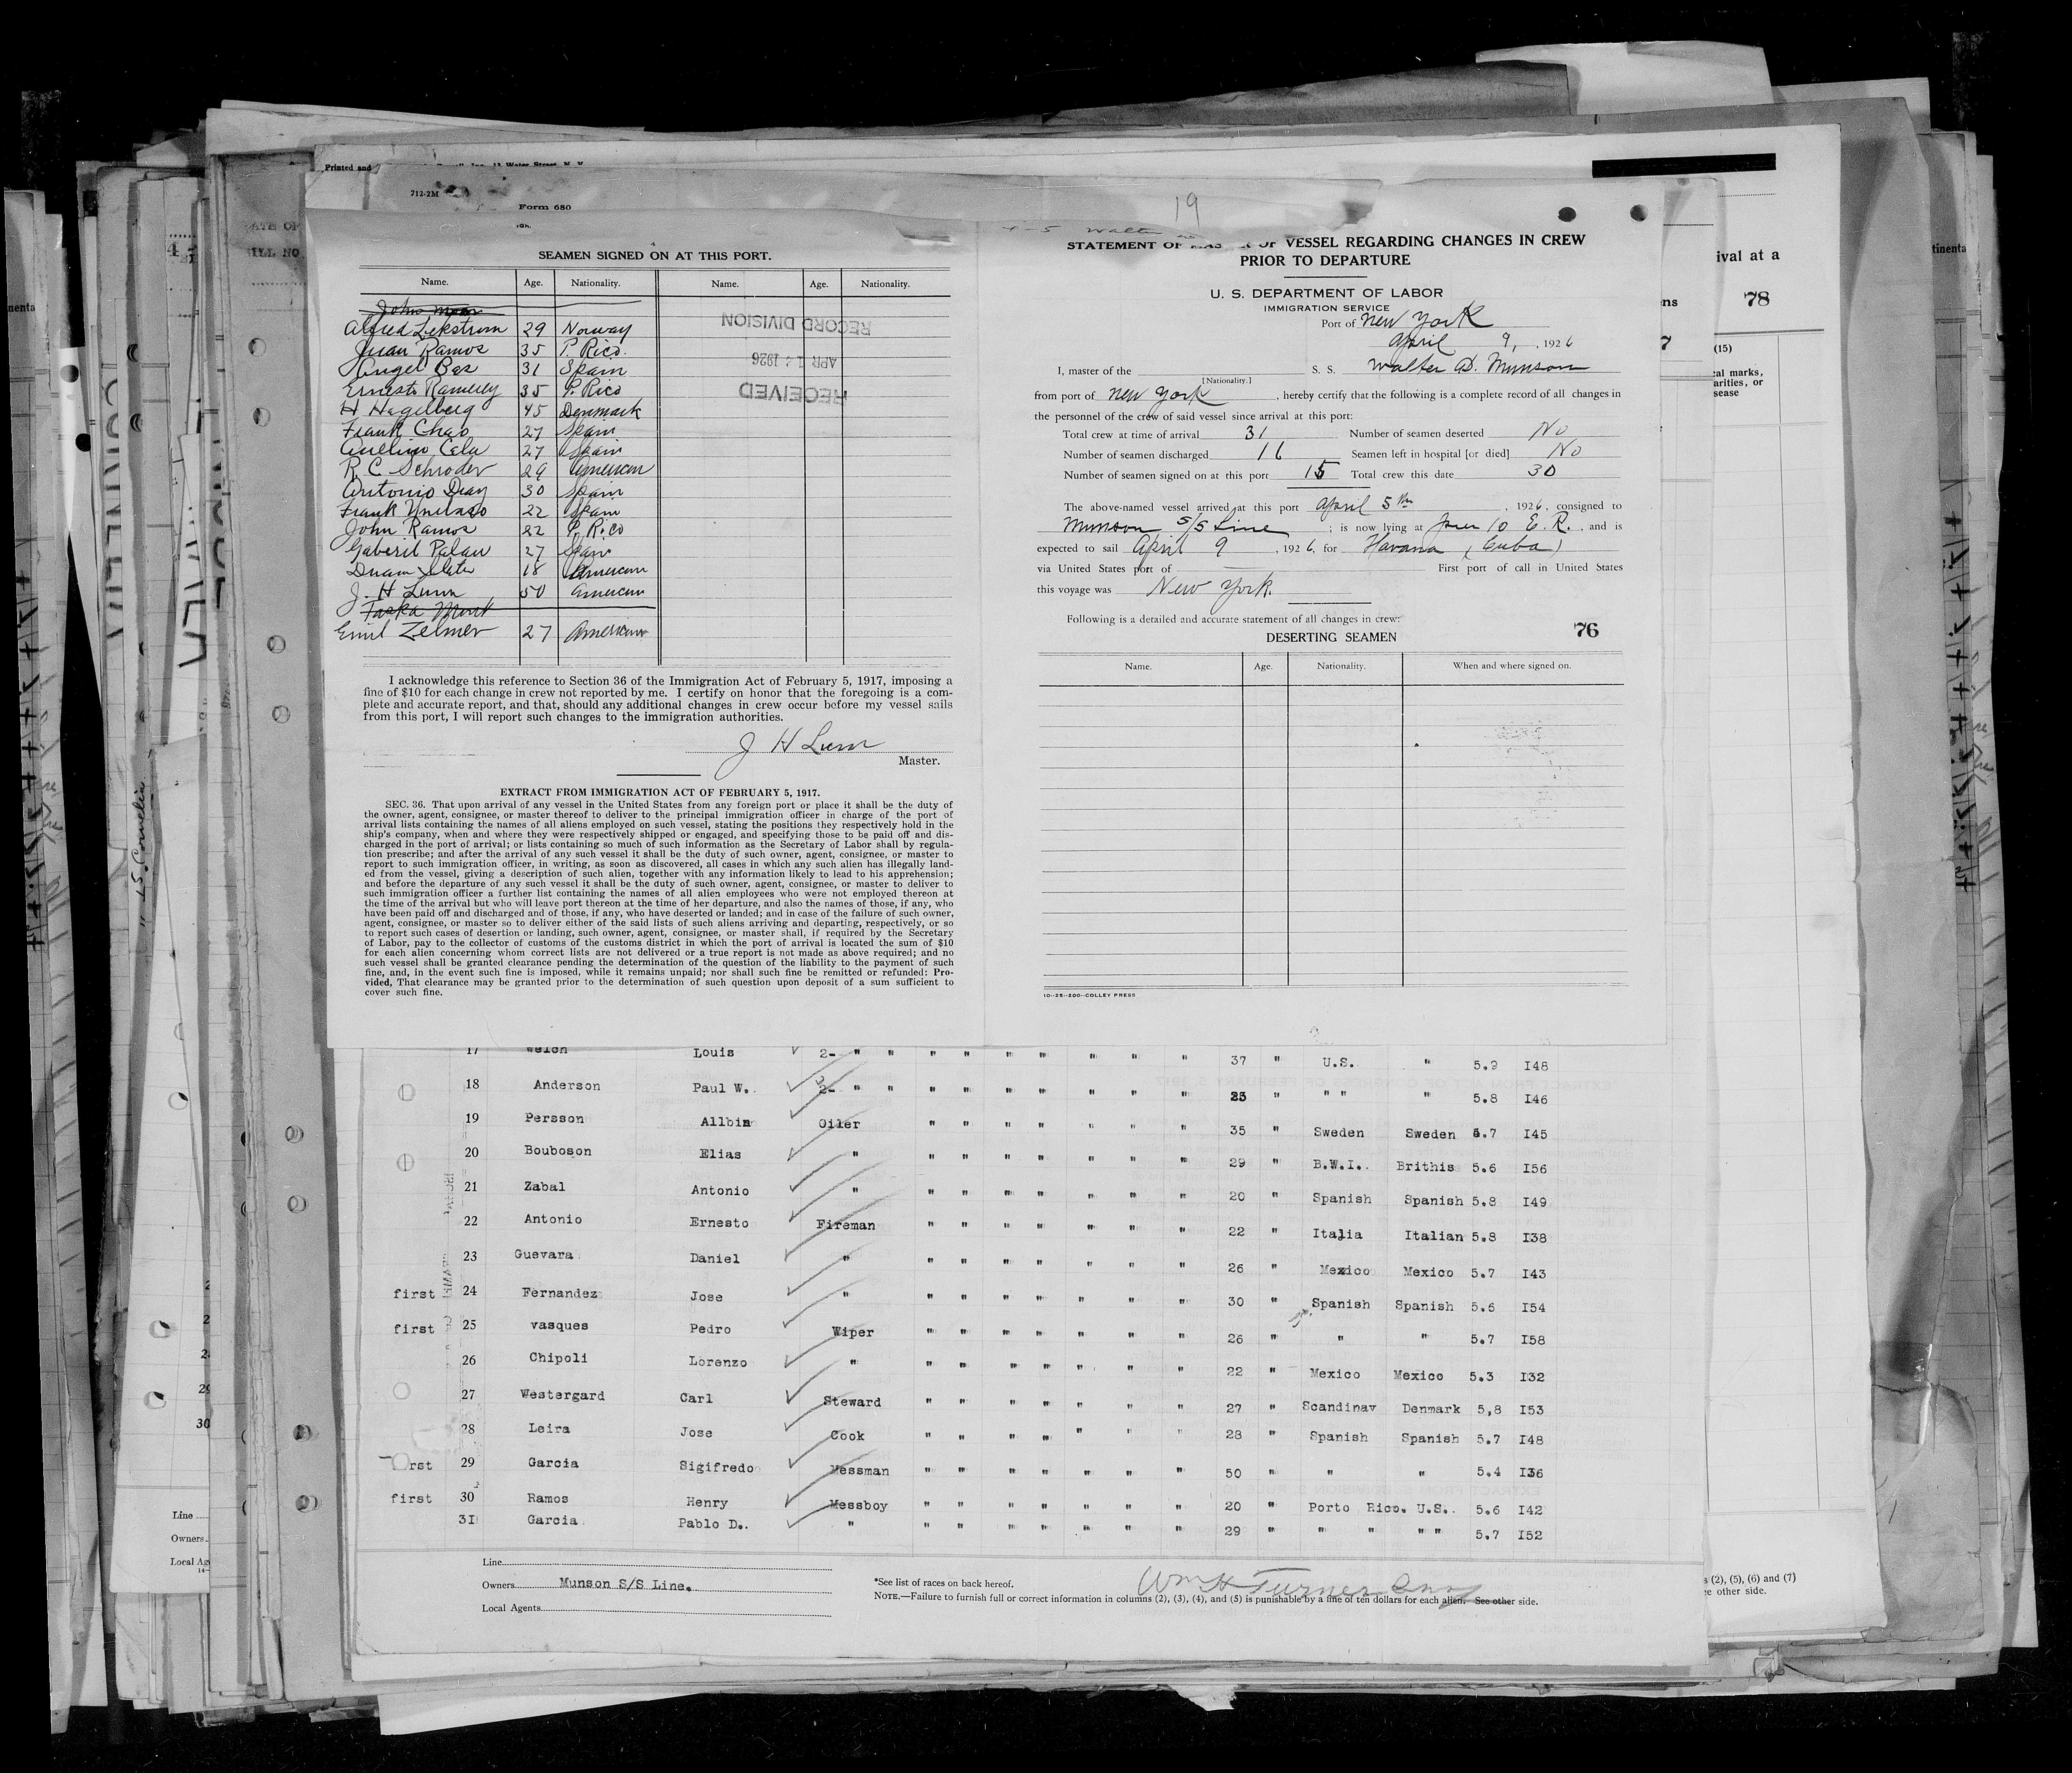 Printed and
712-2M
Form 680
19
SEAMEN SIGNED ON AT THIS PORT.
Name. Age. Nationality. Name. Age. Nationality.
Alfred Lekstrom 29 Norway
Juan Ramos 35 P. Rico
Angel Bas 31 Spain
Ernesto Ramerey 35 P. Rico
H Hagelberg 45 Denmark
Frank Chao 27 Spain
Aurelino Cela 27 Spain
R C Schroder 29 American
Antonio Diaz 30 Spain
Frank 22 Spain
John Ramos 22 P. Rico
Gaberil Palau 27 Spain
18 American
J. H Lunn 50 American
Emil Zelmer 27 American
RECORD DIVISION
APR 1 1926
RECEIVED
I acknowledge this reference to Section 36 of the Immigration Act of February 5, 1917, imposing a
fine of $10 for each change in crew not reported by me. I certify on honor that the foregoing is a com-
plete and accurate report, and that, should any additional changes in crew occur before my vessel sails
from this port, I will report such changes to the immigration authorities.
J H Lunn
Master.
EXTRACT FROM IMMIGRATION ACT OF FEBRUARY 5, 1917.
SEC. 36. That upon arrival of any vessel in the United States from any foreign port or place it shall be the duty of
the owner, agent, consignee, or master thereof to deliver to the principal immigration officer in charge of the port of
arrival lists containing the names of all aliens employed on such vessel, stating the positions they respectively hold in the
ship's company, when and where they were respectively shipped or engaged, and specifying those to be paid off and dis-
charged in the port of arrival; or lists containing so much of such information as the Secretary of Labor shall by regula-
tion prescribe; and after the arrival of any such vessel it shall be the duty of such owner, agent, consignee, or master to
report to such immigration officer, in writing, as soon as discovered, all cases in which any such alien has illegally land-
ed from the vessel, giving a description of such alien, together with any information likely to lead to his apprehension;
and before the departure of any such vessel it shall be the duty of such owner, agent, consignee, or master to deliver to
such immigration officer a further list containing the names of all alien employees who were not employed thereon at
the time of the arrival but who will leave port thereon at the time of her departure, and also the names of those, if any, who
have been paid off and discharged and of those, if any, who have deserted or landed; and in case of the failure of such owner,
agent, consignee, or master so to deliver either of the said lists of such aliens arriving and departing, respectively, or so
to report such cases of desertion or landing, such owner, agent, consignee, or master shall, if required by the Secretary
of Labor, pay to the collector of customs of the customs district in which the port of arrival is located the sum of $10
for each alien concerning whom correct lists are not delivered or a true report is not made as above required; and no
such vessel shall be granted clearance pending the determination of the question of the liability to the payment of such
fine, and, in the event such fine is imposed, while it remains unpaid; nor shall such fine be remitted or refunded: Pro-
vided, That clearance may be granted prior to the determination of such question upon deposit of a sum sufficient to
cover such fine.
STATEMENT OF VESSEL REGARDING CHANGES IN CREW
PRIOR TO DEPARTURE
U. S. DEPARTMENT OF LABOR
IMMIGRATION SERVICE
Port of New York
April 9, , 1926
I, master of the S. S. Walter D. Munson
[Nationality.]
from port of New York , hereby certify that the following is a complete record of all changes in
the personnel of the crew of said vessel since arrival at this port:
Total crew at time of arrival 31 Number of seamen deserted No
Number of seamen discharged 16 Seamen left in hospital [or died] No
Number of seamen signed on at this port 15 Total crew this date 30
The above-named vessel arrived at this port April 5th , 1926, consigned to
Munson S/S Line ; is now lying at Pier 10 E. R. , and is
expected to sail April 9 , 1926, for Havana (Cuba)
via United States port of First port of call in United States
this voyage was New York.
Following is a detailed and accurate statement of all changes in crew:
76
DESERTING SEAMEN
Name. Age. Nationality. When and where signed on.
10--25--200--COLLEY PRESS
17 Welch Louis 2- " " " " " " " " " 37 " U.S. " 5.9 I48
18 Anderson Paul W. 2- " " " " " " " " " 25 " " " " 5.8 I46
19 Persson Allbin Oiler " " " " " " " 35 " Sweden Sweden 5.7 I45
20 Bouboson Elias " " " " " " " " 29 " B.W.I. Brithis 5.6 I56
21 Zabal Antonio " " " " " " " " 20 " Spanish Spanish 5.8 I49
22 Antonio Ernesto Fireman " " " " " " " 22 " Italia Italian 5.8 I38
23 Guevara Daniel " " " " " " " " 26 " Mexico Mexico 5.7 I43
first 24 Fernandez Jose " " " " " " " " 30 " Spanish Spanish 5.6 I54
first 25 vasques Pedro Wiper " " " " " " " 26 " " " 5.7 I58
26 Chipoli Lorenzo " " " " " " " " 22 " Mexico Mexico 5.3 I32
27 Westergard Carl Steward " " " " " " " 27 " Scandinav Denmark 5,8 I53
28 Leira Jose Cook " " " " " " " 28 " Spanish Spanish 5.7 I48
rst 29 Garcia Sigifredo Messman " " " " " " " 50 " " " 5.4 I36
first 30 Ramos Henry Messboy " " " " " " " 20 " Porto Rico. U.S. 5.6 I42
3I Garcia Pablo D. " " " " " " " " 29 " " " " " 5.7 I52
Line
Owners Munson S/S Line.
Local Agents
*See list of races on back hereof.
NOTE.—Failure to furnish full or correct information in columns (2), (3), (4), and (5) is punishable by a fine of ten dollars for each alien. See other side.
Wm H Turner
ival at a
78
(15)
Line
Owners
Local Ag
s (2), (5), (6) and (7)
ee other side.